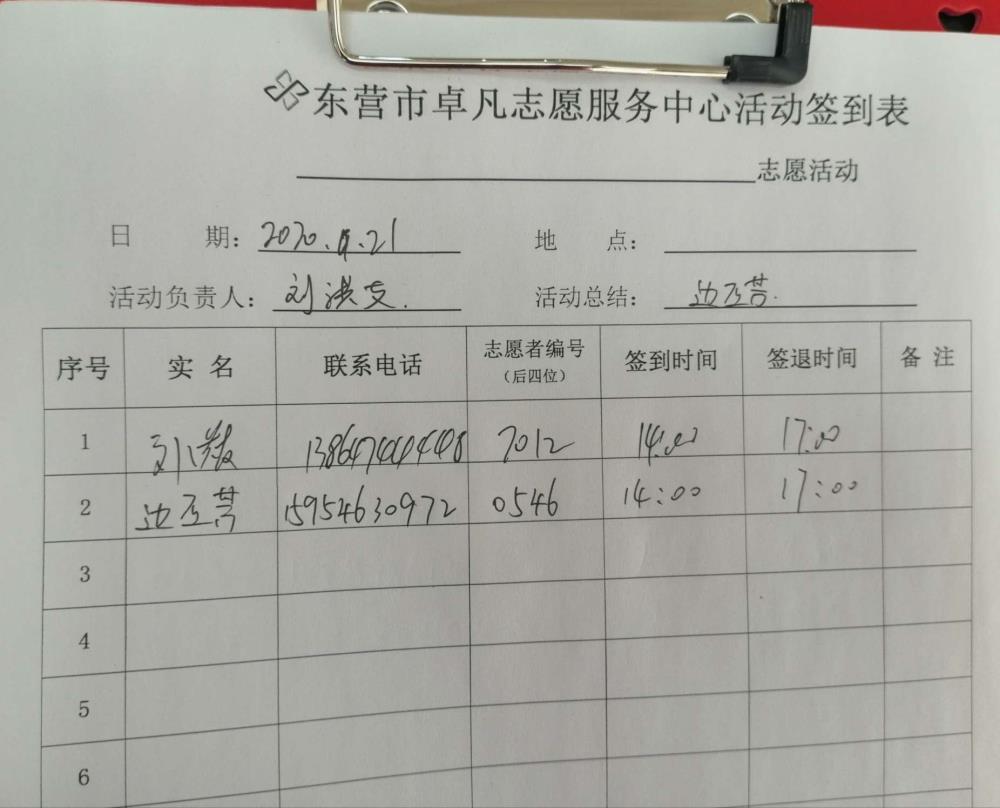 东营市卓凡志愿服务中心活动签到表
志愿活动
日 期: 2020. .21 地 点:
活动负责人: 刘洪支. 活动总结:
序号 实 名 联系电话 志愿者编号 (后四位) 签到时间 签退时间 备 注
1 7012 14:00 17:00
2 15954630972 0546 14:00 17:00
3
4
5
6